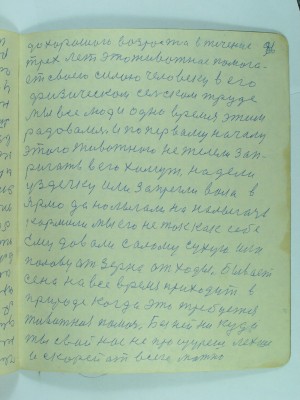 до хорошого возроста в течение
трёх лет это животное помога-
ет своею силою человеку в его
физическом сельском труде
мы все люди одно время этим
радовались и по первому началу
этого животного не жалели зап-
ригать в его хомут, надели
уздечку или запрегли вола в
ярмо да налыгали на налыгаче
кормили мы его не так как себя
ему довали салому сухую или
полову от зерна отходы. Бывает
сена на все время приходит в
природе когда это требуется
животная помощ, бы ней ни куда
ты свой нос не просунеш
и скорей от всего можно